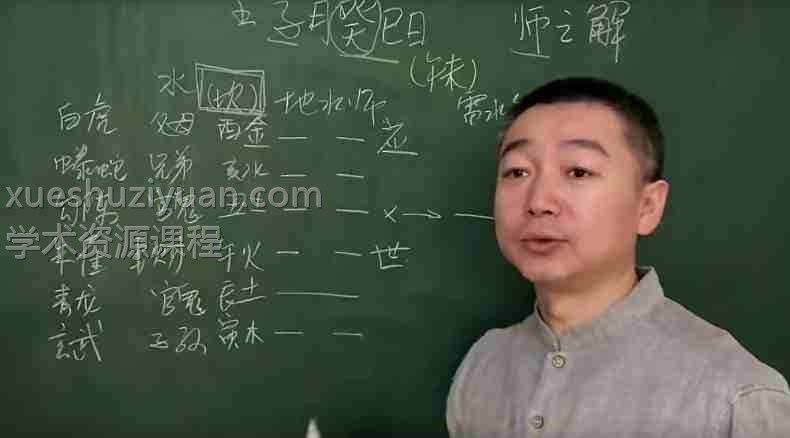 子月癸巳日 师之解
(午未)
水 地水师
白虎 父母 酉金 应
螣蛇 兄弟 亥水
勾陈 官鬼 丑土 X→
朱雀 妻财 午火 世
青龙 官鬼 辰土
玄武 子孙 寅木
xueshuziyuan.com
学术资源课程